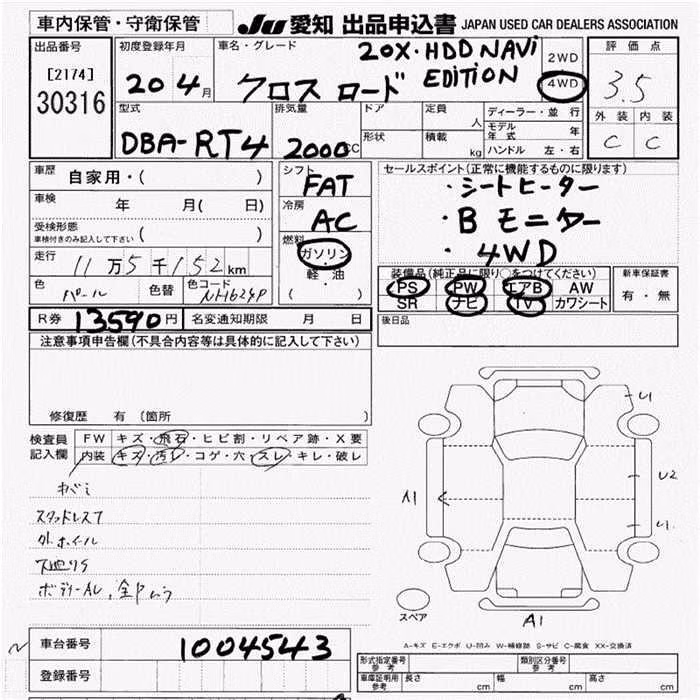 車内保管・守衛保管
JU 愛知 出品申込書 JAPAN USED CAR DEALERS ASSOCIATION
出品番号
[2174]
30316
初度登録年月
20 4月
車名・グレード
20X・HDD NAVi
EDITION
クロス ロード
2WD
4WD
評価点
3.5
外装 内装
C C
型式
DBA-RT4
排気量
2000cc
ドア
形状
定員
人
積載
kg
ディーラー・並行
モデル年式 年
ハンドル 左・右
車歴 自家用・( )
車検 年 月( 日)
受検形態
車検付きのみ記入して下さい ( )
走行 11万5千152km
色 パール 色替 色コード NH624P
シフト
FAT
冷房
AC
燃料
ガソリン
軽・油
( )
セールスポイント(正常に機能するものに限ります)
・シートヒーター
・Bモニター
・4WD
装備品(純正品に限り○をつけてください)
PS PW エアB AW
SR ナビ TV カワシート
新車保証書
有・無
R券 13590円 名変通知期限 月 日
後日品
注意事項申告欄(不具合内容等は具体的に記入して下さい)
修復歴 有 (箇所
検査員記入欄
FW キズ・飛石・ヒビ割・リペア跡・X要
内装 キズ・汚レ・コゲ・穴・スレ・キレ・破レ
スタッドレスT
外ホイル
U1
U2
A1
A1
スペア
A-キズ E-エクボ U-凹み W-補修跡 S-サビ C-腐食 XX-交換済
車台番号 1004543
登録番号
形式指定番号 参考
類別区分番号 参考
車庫証明用 参考 長さ cm 幅 cm 高さ cm